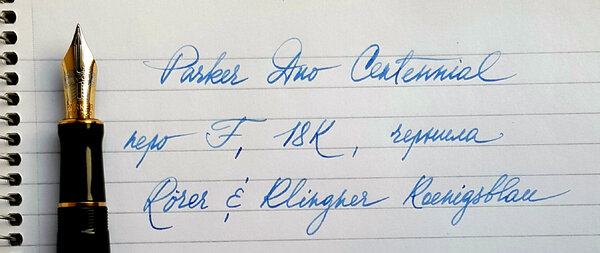 Parker Duo Centennial
перо F, 18K, чернила
Rörer & Klingner Koenigsblau